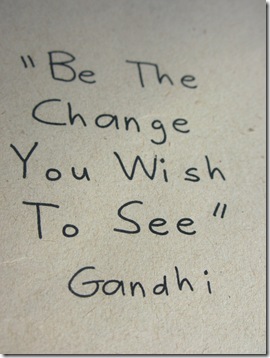 "Be The
Change
You Wish
To See"
Gandhi